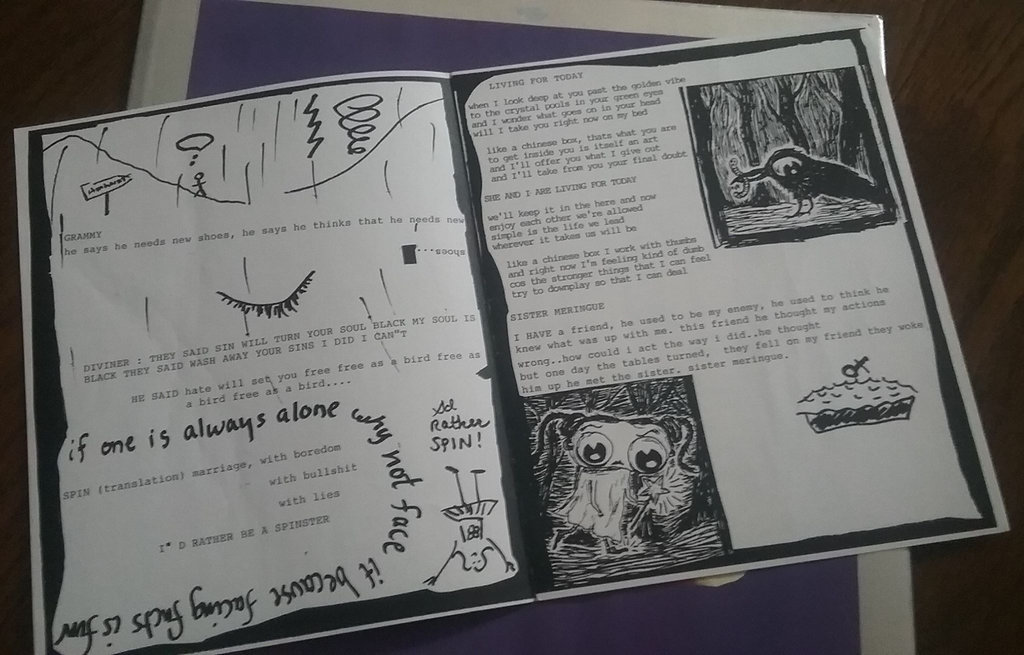 GRAMMY
he says he needs new shoes, he says he thinks that he needs new
shoes...
DIVINER : THEY SAID SIN WILL TURN YOUR SOUL BLACK MY SOUL IS
BLACK THEY SAID WASH AWAY YOUR SINS I DID I CAN"T
HE SAID hate will set you free free as a bird free as
a bird free as a bird....
if one is always alone
why not face
it because facing facts is fun
SPIN (translation) marriage, with boredom
with bullshit
with lies
I" D RATHER BE A SPINSTER
Rather
SPIN!
LIVING FOR TODAY
when I look deep at you past the golden vibe
to the crystal pools in your green eyes
and I wonder what goes on in your head
will I take you right now on my bed
like a chinese box, thats what you are
to get inside you is itself an art
and I'll offer you what I give out
and I'll take from you your final doubt
SHE AND I ARE LIVING FOR TODAY
we'll keep it in the here and now
enjoy each other we're allowed
simple is the life we lead
wherever it takes us will be
like a chinese box I work with thumbs
and right now I'm feeling kind of dumb
cos the stronger things that I can feel
try to downplay so that I can deal
SISTER MERINGUE
I HAVE a friend, he used to be my enemy, he used to think he
knew what was up with me. this friend he thought my actions
wrong..how could i act the way i did..he thought
but one day the tables turned, they fell on my friend they woke
him up he met the sister. sister meringue.